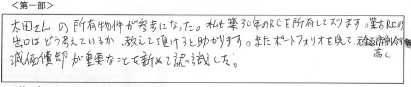 <第一部>
太田さんの所有物件が参考になった。私も築30年のRCを所有しております。築古RCの
出口はどう考えているか、教えて頂けると助かります。またポートフォリオを見て、
減価償却が重要なことを新めて認識した。 高く